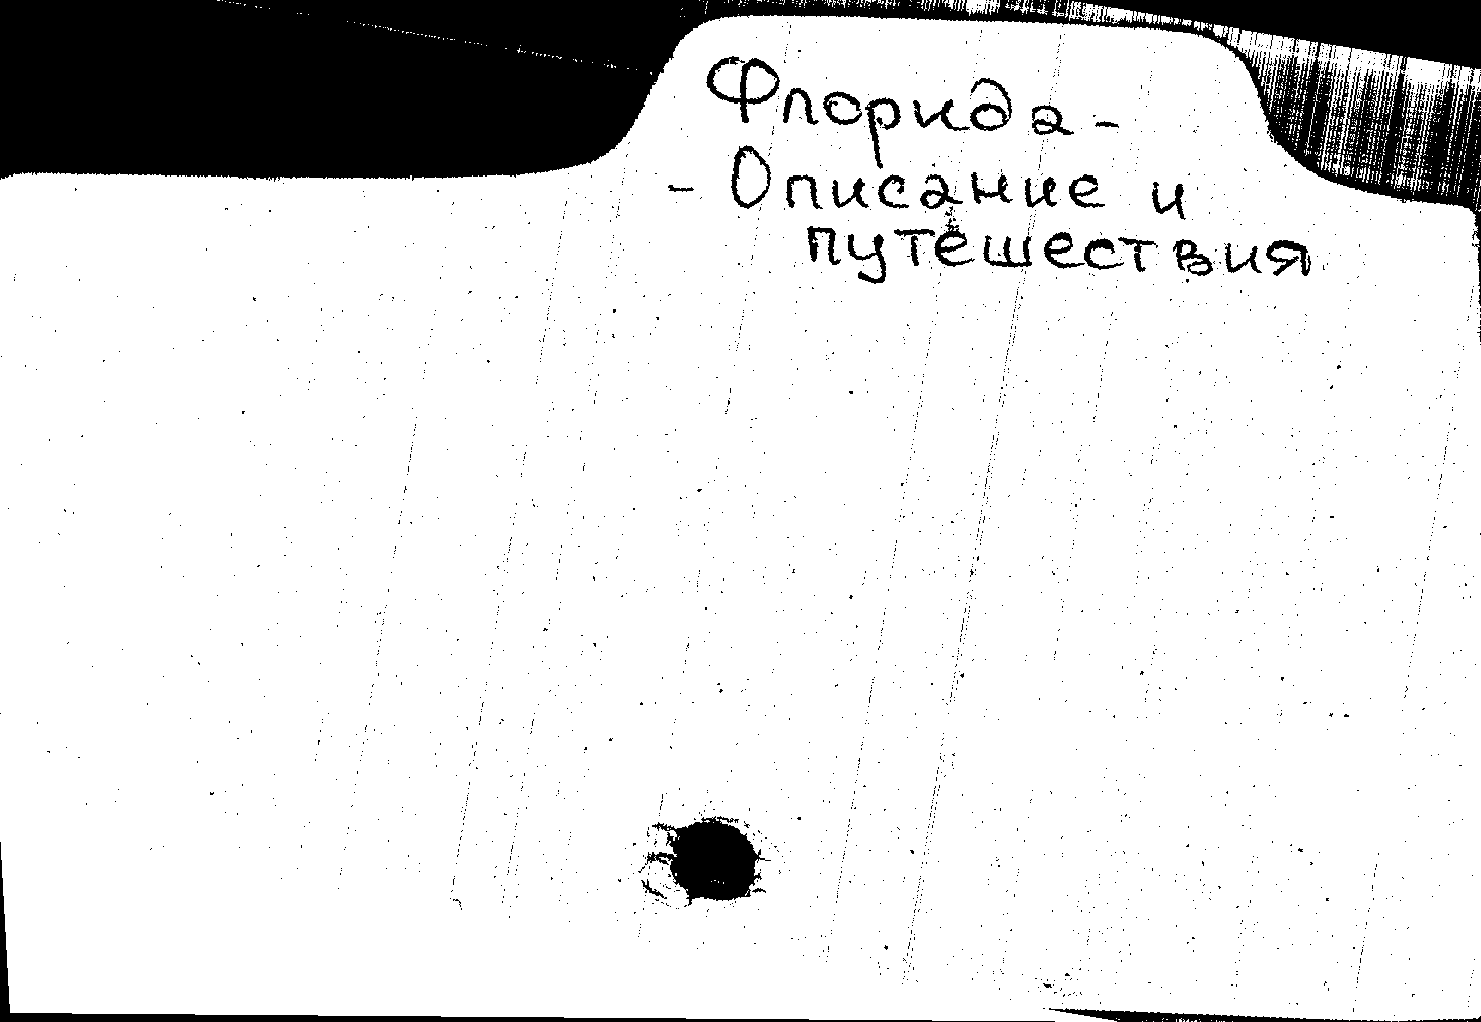 Флорида -
- Описание и
путешествия